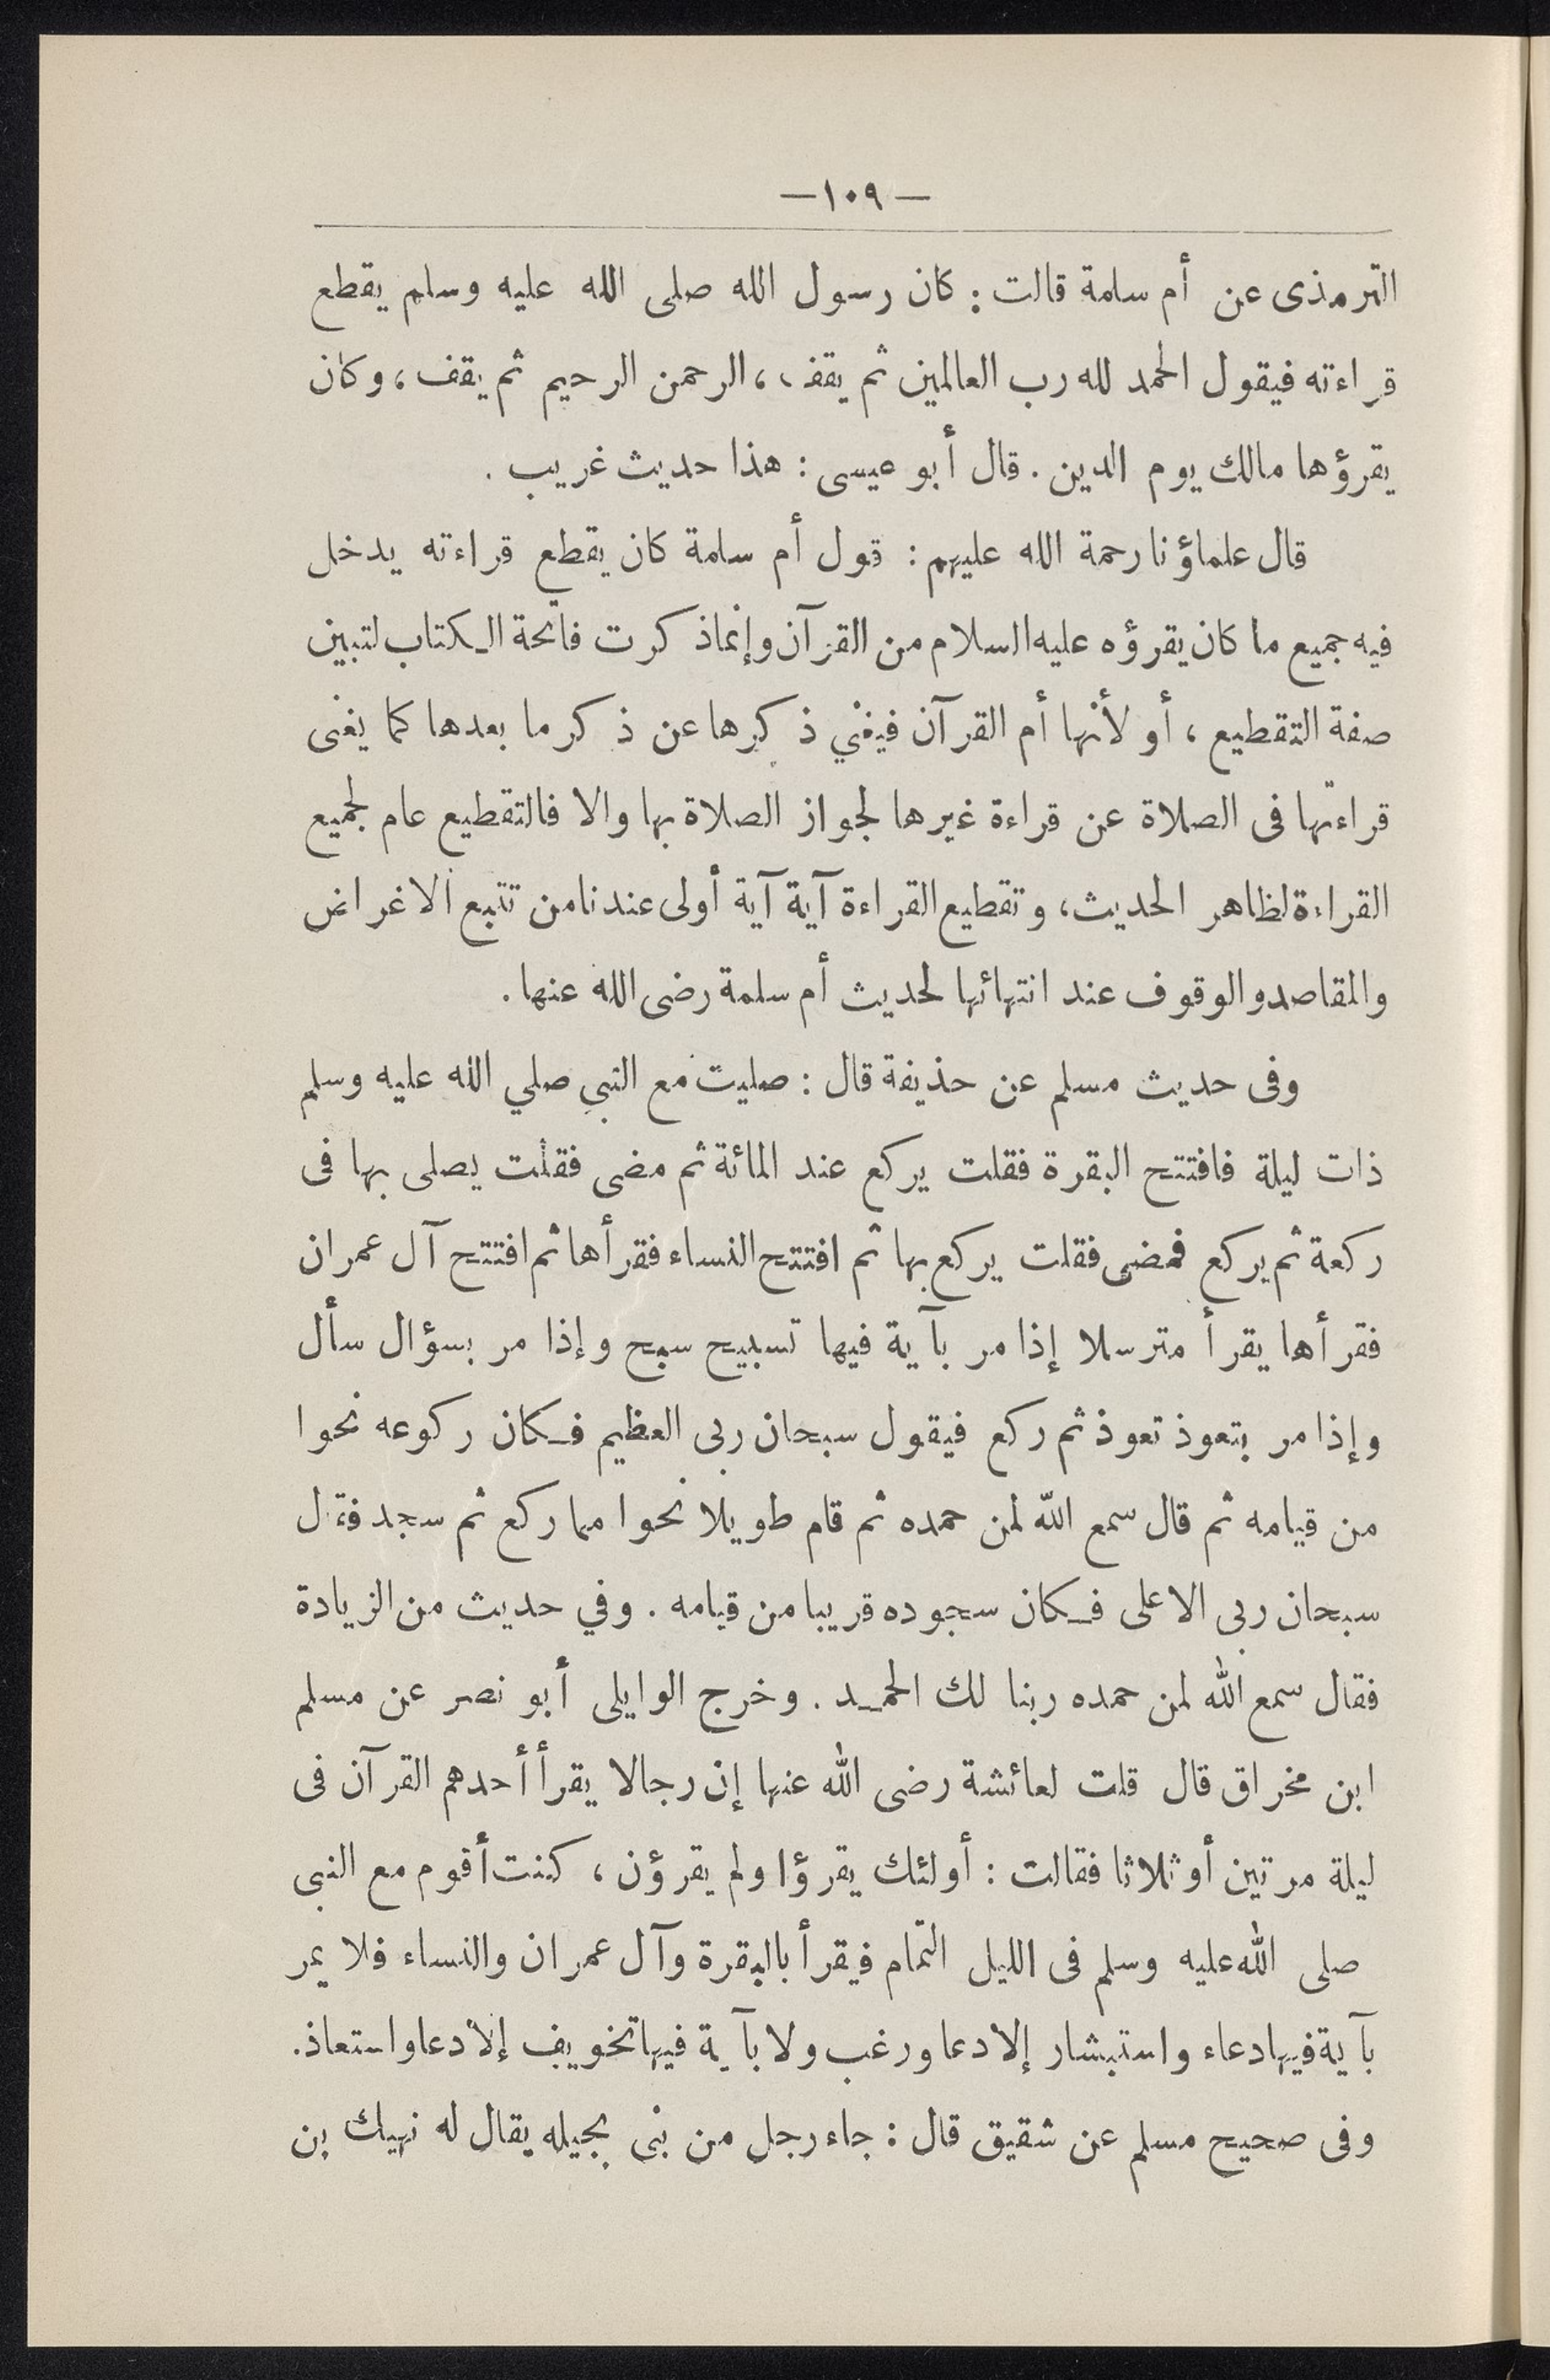 —١٠٩—
الترمذى عن أم سلمة قالت : كان رسول الله صلى الله عليه وسلم يقطع
قراءته فيقول الحمد لله رب العالمين ثم يقف ، الرحمن الرحيم ثم يقف ، وكان
يقرؤها مالك يوم الدين . قال أبو عيسى : هذا حديث غريب .
قال علماؤنا رحمة الله عليهم : قول أم سلمة كان يقطع قراءته يدخل
فيه جميع ما كان يقرؤه عليه السلام من القرآن وإنما ذكرت فاتحة الكتاب لتبين
صفة التقطيع ، أو لأنها أم القرآن فيغني ذكرها عن ذكر ما بعدها كما يغنى
قراءتها فى الصلاة عن قراءة غيرها لجواز الصلاة بها والا فالتقطيع عام لجميع
القراءة لظاهر الحديث ، وتقطيع القراءة آية آية أولى عندنا من تتبع الاغراض
والمقاصد والوقوف عند انتهائها لحديث أم سلمة رضى الله عنها .
وفى حديث مسلم عن حذيفة قال : صليت مع النبي صلي الله عليه وسلم
ذات ليلة فافتتح البقرة فقلت يركع عند المائة ثم مضى فقلت يصلى بها فى
ركعة ثم يركع فمضى فقلت يركع بها ثم افتتح النساء فقرأها ثم افتتح آل عمران
فقرأها يقرأ مترسلا إذا مر بآية فيها تسبيح سبح وإذا مر بسؤال سأل
وإذا مر بتعوذ تعوذ ثم ركع فيقول سبحان ربى العظيم فكان ركوعه نحوا
من قيامه ثم قال سمع الله لمن حمده ثم قام طويلا نحوا مما ركع ثم سجد فقال
سبحان ربى الاعلى فكان سجوده قريبا من قيامه . وفي حديث من الزيادة
فقال سمع الله لمن حمده ربنا لك الحمد . وخرج الوايلى أبو نصر عن مسلم
ابن مخراق قال قلت لعائشة رضى الله عنها إن رجالا يقرأ أحدهم القرآن فى
ليلة مرتين أو ثلاثا فقالت : أولئك يقرؤا ولم يقرؤن ، كنت أقوم مع النبى
صلى الله عليه وسلم فى الليل التمام فيقرأ بالبقرة وآل عمران والنساء فلا يمر
بآية فيها دعاء واستبشار إلا دعا ورغب ولا بآية فيها تخويف إلا دعا واستعاذ .
وفى صحيح مسلم عن شقيق قال : جاء رجل من بنى بجيله يقال له نهيك بن